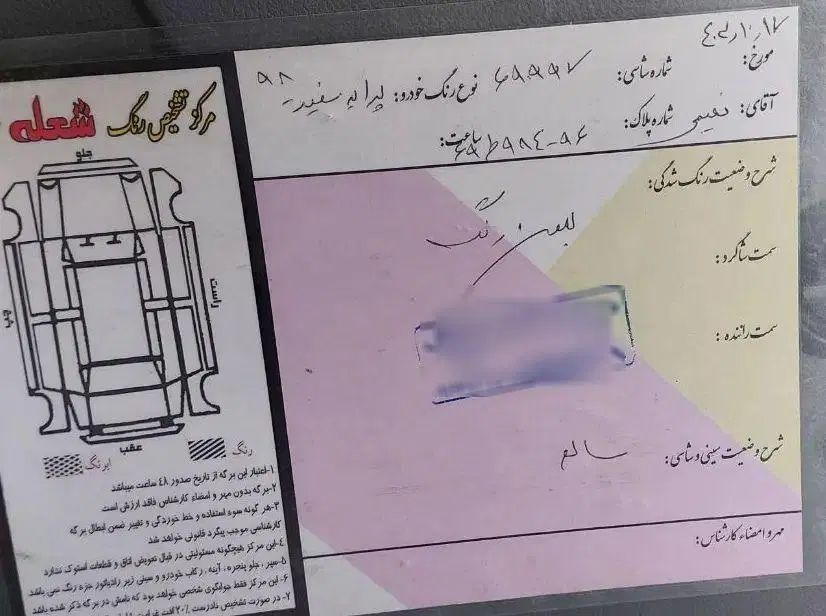 مرکز تشخیص رنگ شعله
جلو
راست
چپ
عقب
رنگ
ابرنگ
۱-اعتبار این برگه از تاریخ صدور ۴۸ ساعت میباشد
۲-برگه بدون مهر و امضاء کارشناس فاقد ارزش است
۳-هر گونه سوء استفاده و خط خوردگی و تغییر ضمن ابطال برگه
کارشناسی موجب پیگرد قانونی خواهد شد
۴-این مرکز هیچگونه مسئولیتی در قبال تعویض اتاق و قطعات استوک ندارد
۵-سپر، جلو پنجره، آینه، رکاب خودرو و سینی زیر رادیاتور جزء رنگ نمی باشد
۶-این مرکز فقط جوابگوی شخصی خواهد بود که نامش در برگه ذکر شده باشد
۷- در صورت تشخیص نادرست ۲۰٪ افت
مورخ:
شماره شاسی: ۶۹۹۹۷
نوع رنگ خودرو: پراید سفید ۹۸
آقای: نعیمی
شماره پلاک:
ساعت:
شرح وضعیت رنگ شدگی:
بدون رنگ
سمت شاگرد:
سمت راننده:
شرح وضعیت سینی و شاسی: سالم
مهر و امضاء کارشناس: